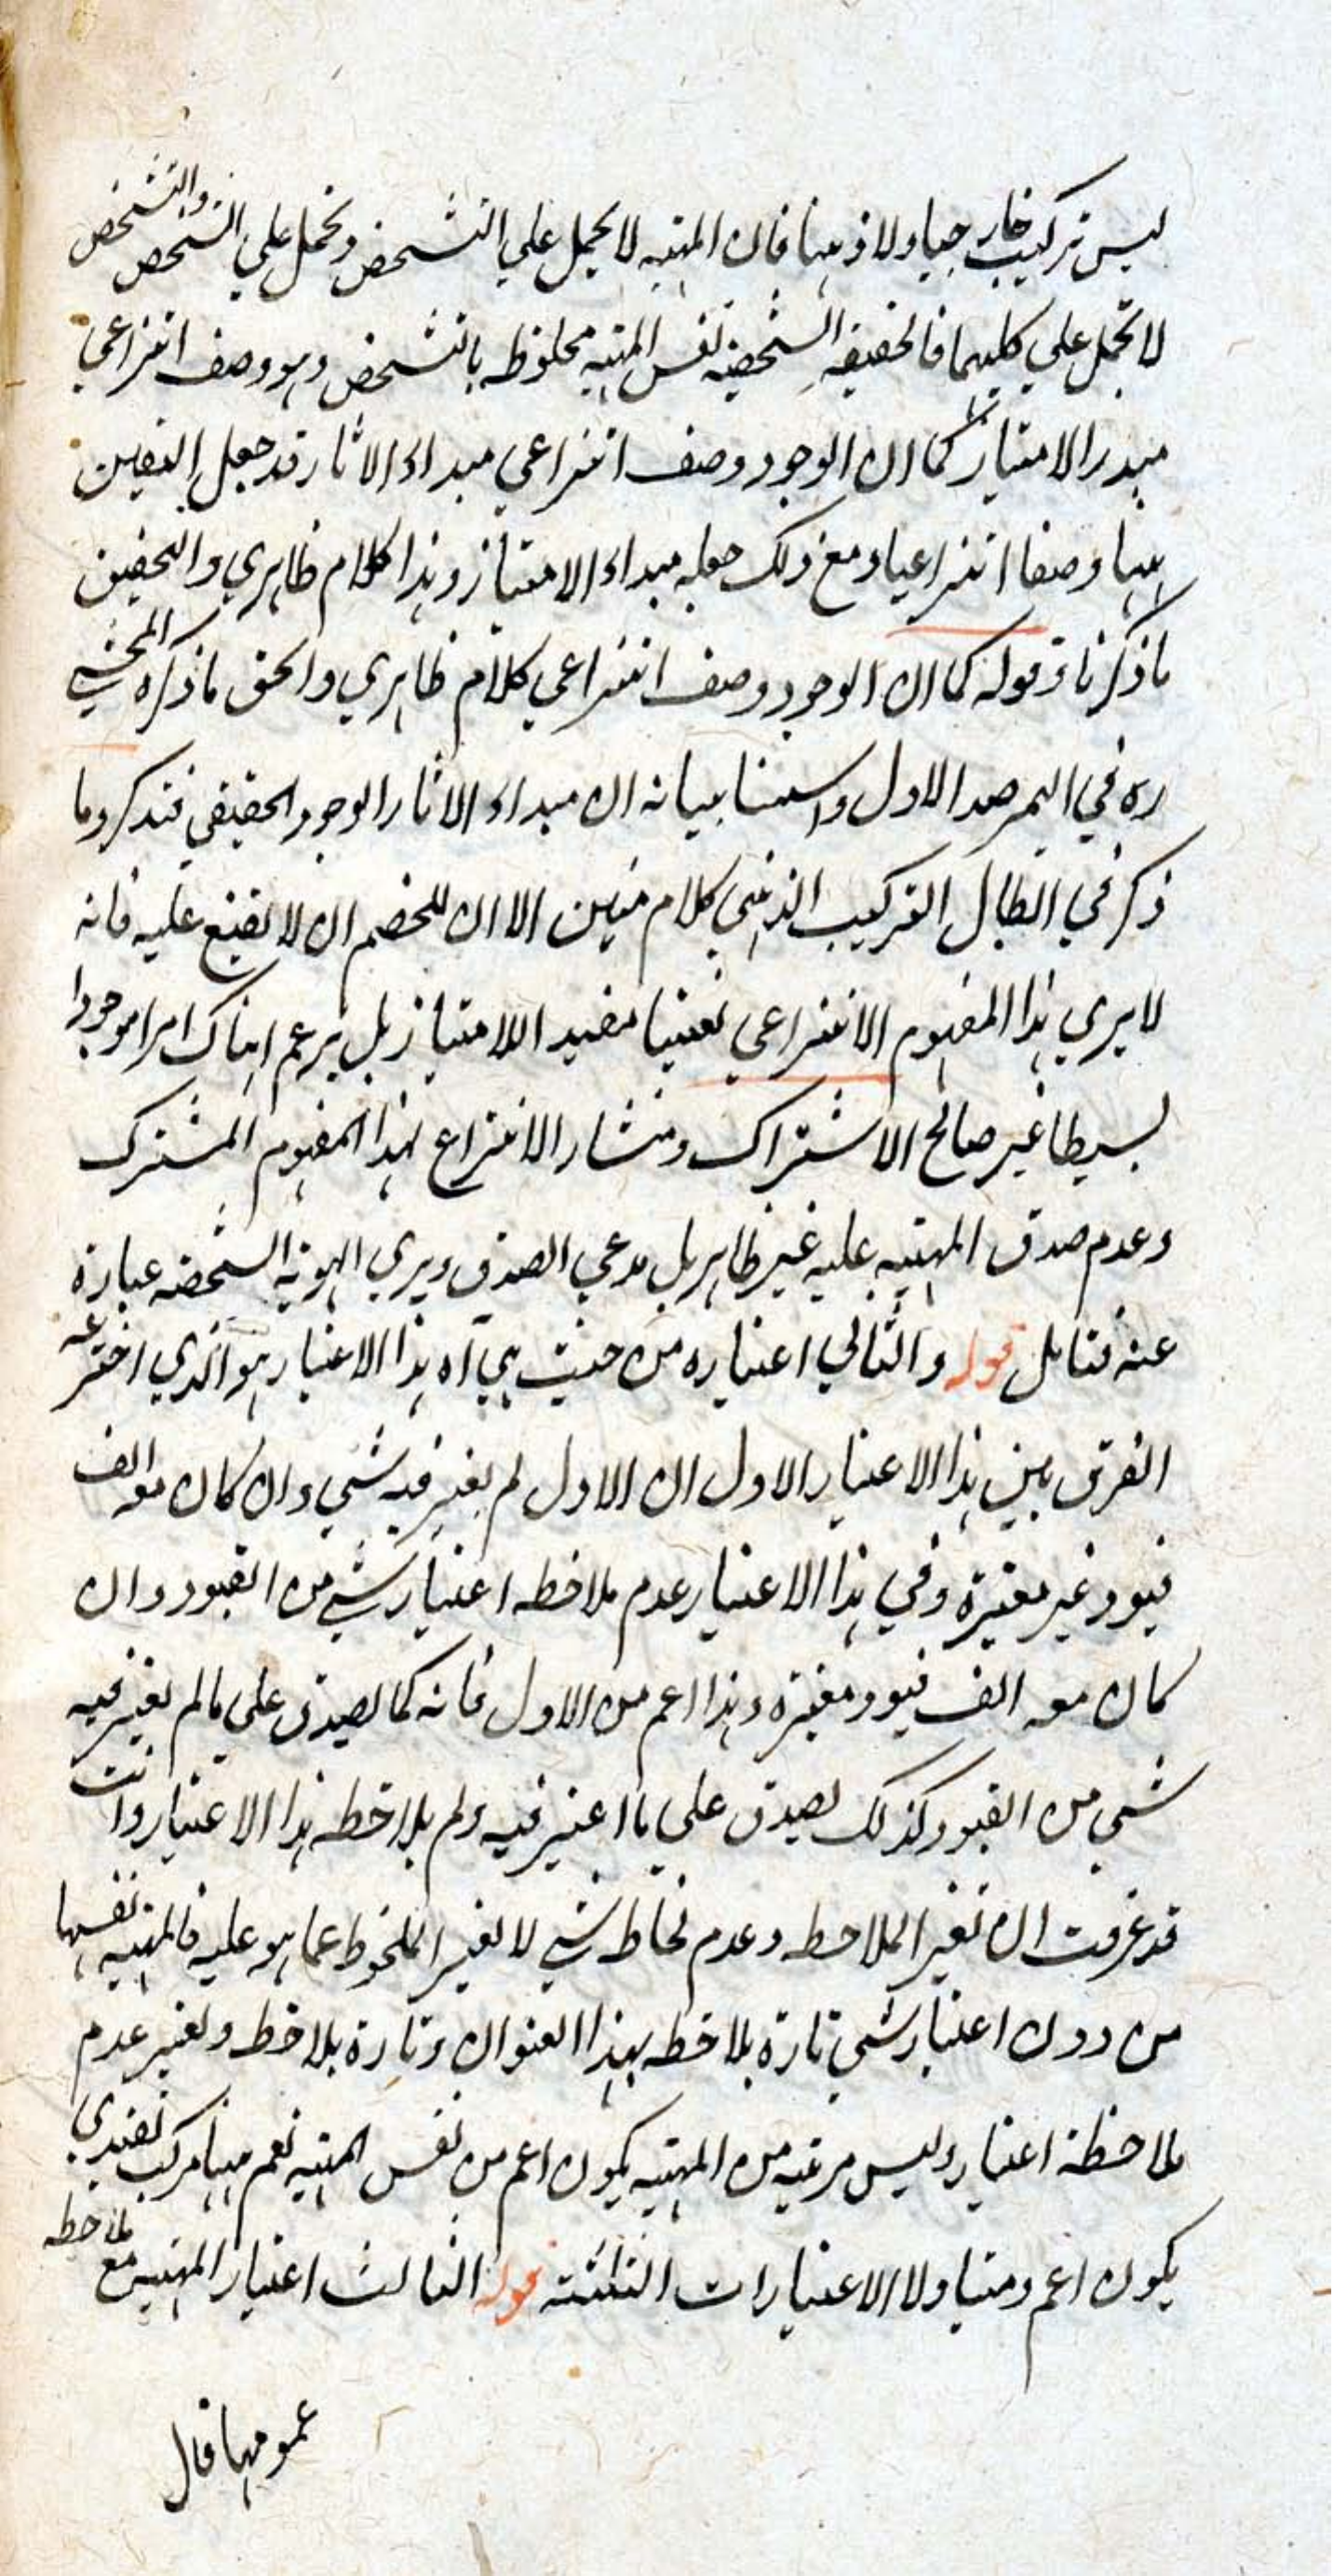 ليس تركيب خارجيا ولا ذهنيا فان المهية لا يحمل على التشخص وتحمل على الشخص والتشخص
لا تحمل على كليهما فالحقيقة الشخصية نفس المهية ملحوظه بالتشخص وهو وصف انتزاعي
مبدء الامتياز كما ان الوجود وصف انتزاعي مبداء الاثار قد جعل التعين
ههنا وصفا انتزاعيا ومع ذلك جعله مبداء الامتياز وهذا كلام ظاهري والتحقيق
ما ذكرنا وقوله كما ان الوجود وصف انتزاعي كلام ظاهري والحق ما ذكره المحشي
ره في المرصد الاول واسسنا بيانه ان مبداء الاثار الوجود الحقيقي فتذكر وما
ذكر في ابطال التركيب الذهني كلام متين الا ان للخصم ان لا يقنع عليه فانه
لا يري هذا المفهوم الانتزاعي تعينا مفيدا للامتياز بل يزعم ان هناك امرا موجودا
بسيطا غير صالح الاشتراك ومنشاء الانتزاع لهذا المفهوم المشترك
وعدم صدق المهية عليه غير ظاهر بل مدعي الصدق ويري الهوية الشخصه عبارة
عنه فتامل قوله والثاني اعتباره من حيث هي آه هذا الاعتبار هو الذي اخترعه
الفرق بين هذا الاعتبار الاول ان الاول لم يعتبر فيه شي وان كان معه الف
قيود غير معتبرة وفي هذا الاعتبار عدم ملاحظه اعتبار شي من القيود وان
كان معه الف قيود معتبرة وهذا اعم من الاول فانه كما يصدق على ما لم يعتبر فيه
شي من القيود كذلك يصدق على ما اعتبر فيه ولم يلاحظه هذا الاعتبار وانت
قد عرفت ان تغير الملاحظه وعدم لحاظ شي لا يغير الملحوظ عما هو عليه فالمهية نفسها
من دون اعتبار شي تارة يلاحظه بهذا العنوان وتارة يلاحظ ويعتبر عدم
ملاحظة اعتبار وليس مرتبه من المهية يكون اعم من نفس المهية نعم ههنا مركب تقييدي
يكون اعم ومتناولا الاعتبارات الثلثة قوله الثالث اعتبار المهية مع ملاحظه
عمومها قال